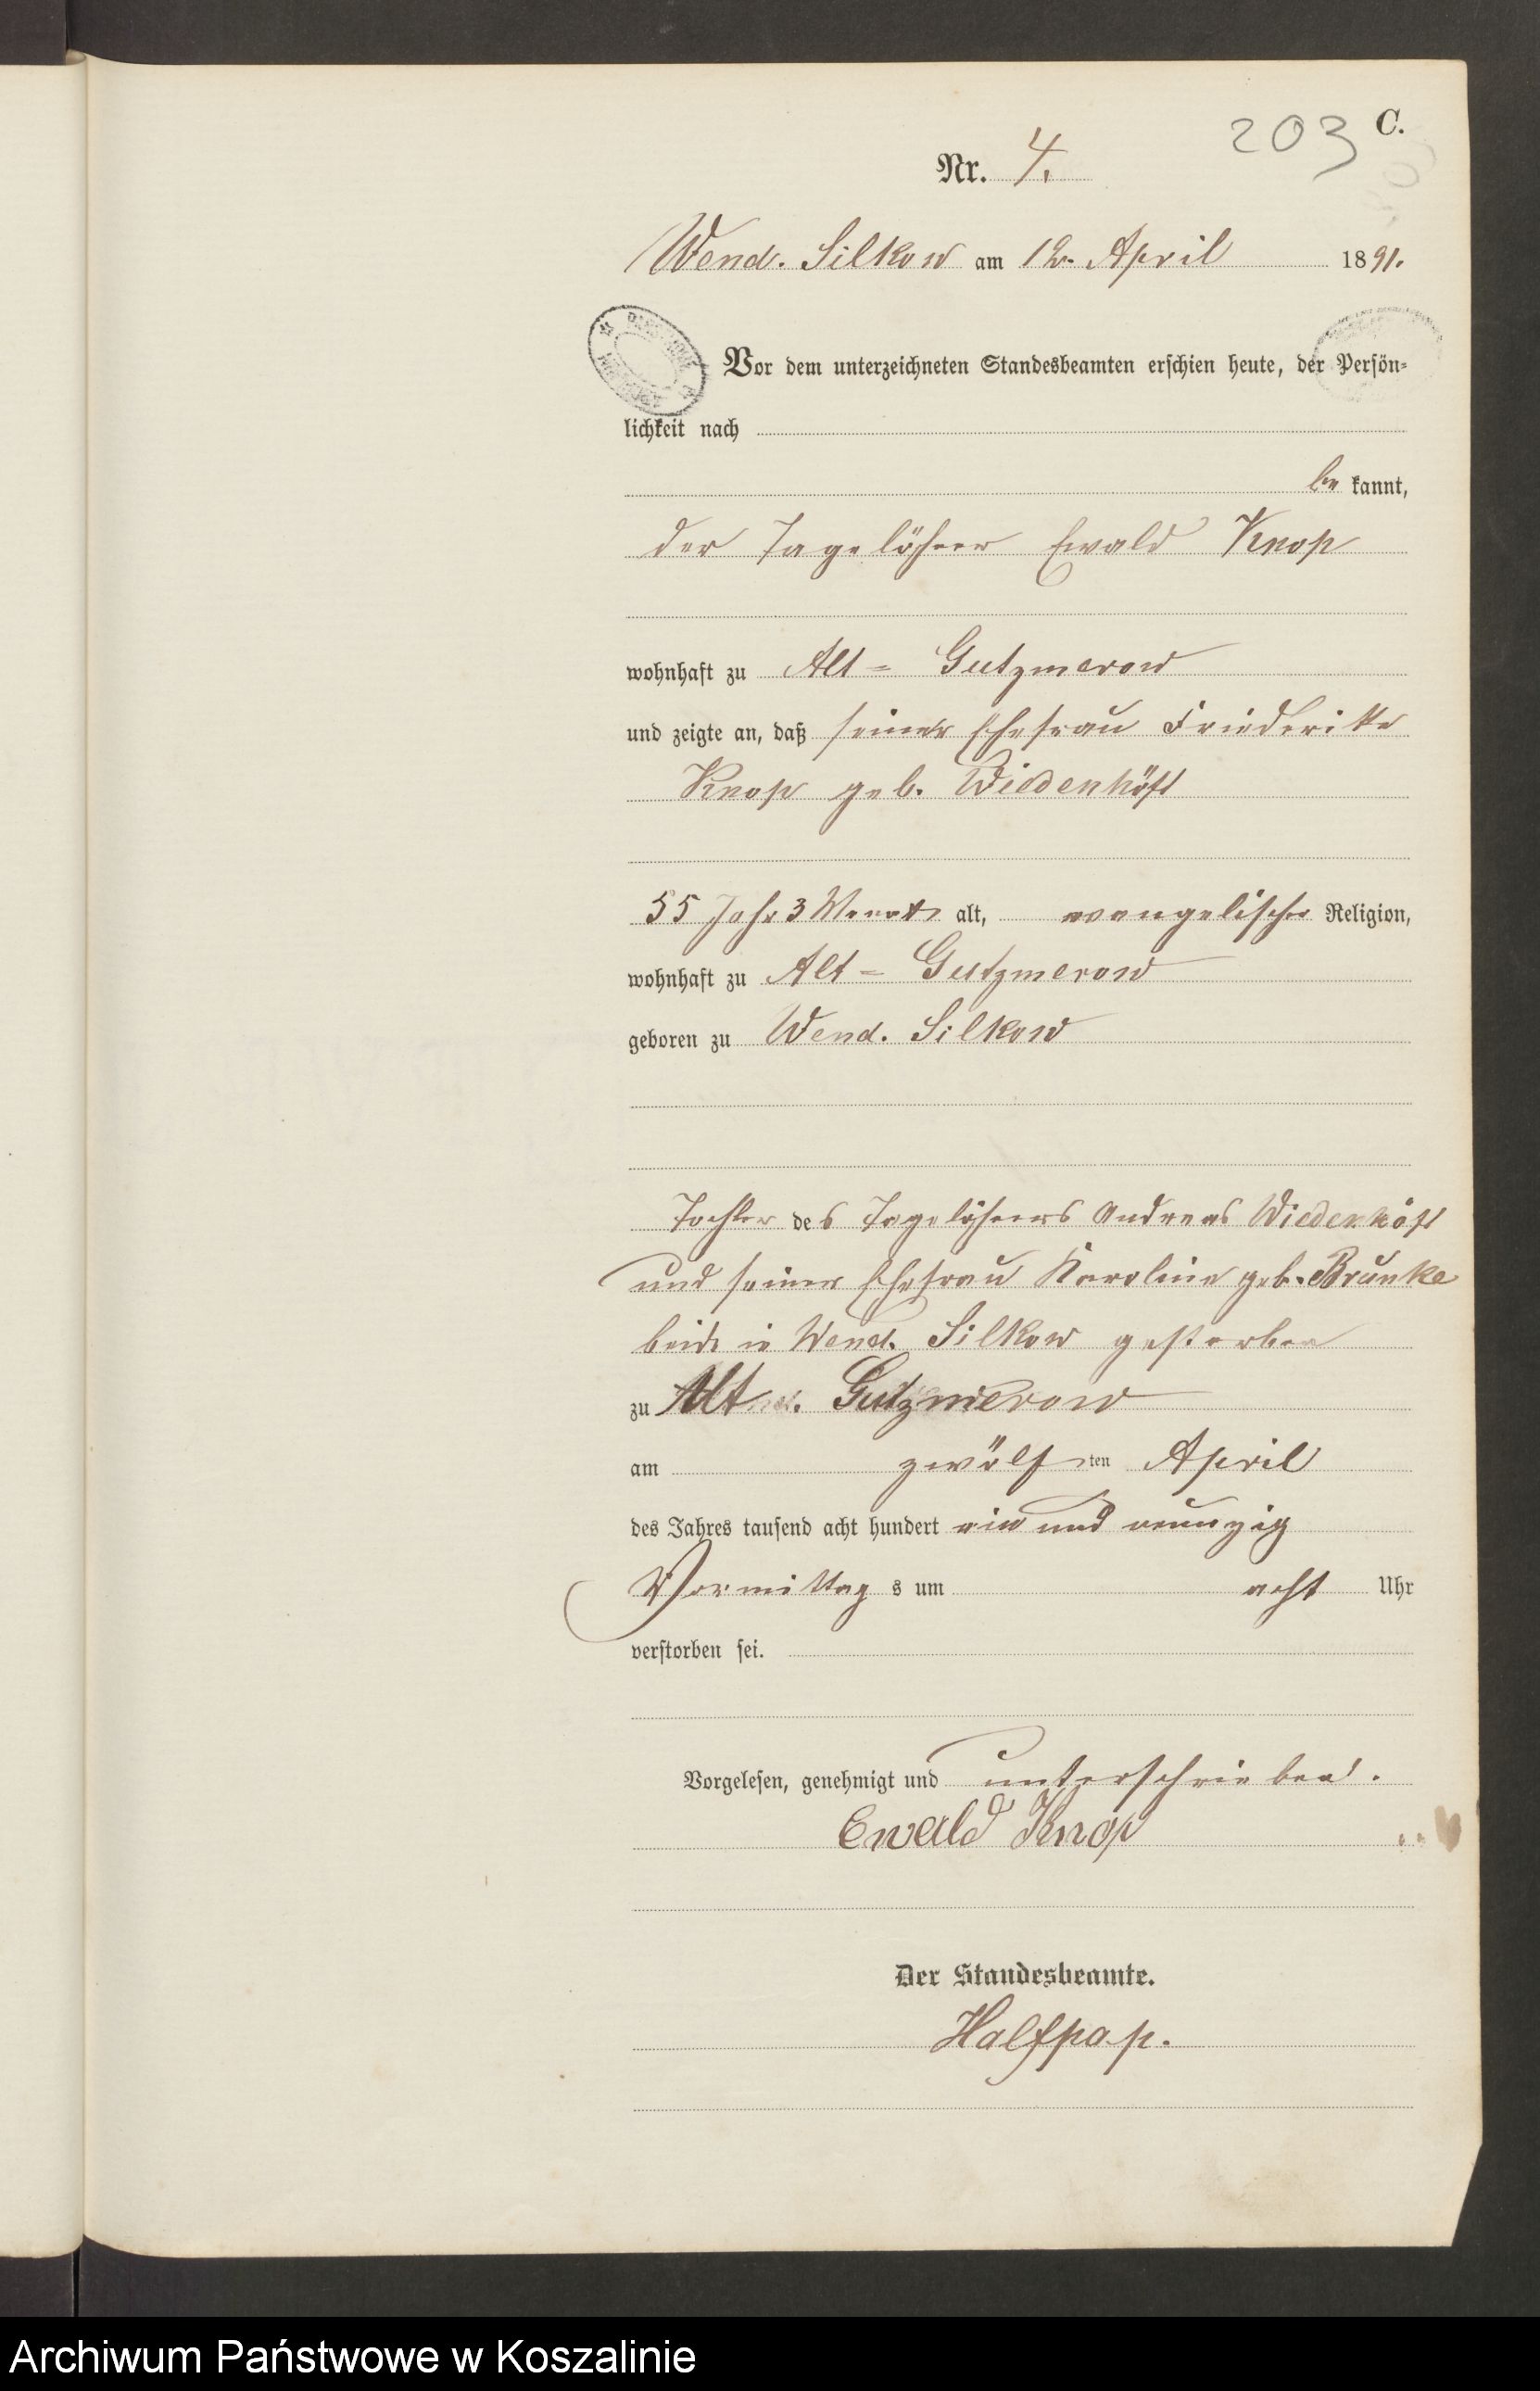 203 C.
Nr. 4.
Wend. Silkow am 12. April 1891.
Vor dem unterzeichneten Standesbeamten erschien heute, der Persön-
lichkeit nach
be kannt,
der Tagelöhner Ewald Knop
wohnhaft zu Alt-Gutzmerow
und zeigte an, daß seine Ehefrau Friederike
Knop geb. Wiedenhöft
55 Jahr 3 Monate alt, evangelischer Religion,
wohnhaft zu Alt-Gutzmerow
geboren zu Wend. Silkow
Tochter des Tagelöhners Andreas Wiedenhöft
und seiner Ehefrau Karoline geb. Brunke
beide in Wend. Silkow gestorben
zu Alt Gutzmerow
am zwölf ten April
des Jahres tausend acht hundert ein und neunzig
Vormittag s um acht Uhr
verstorben sei.
Vorgelesen, genehmigt und unterschrieben.
Ewald Knop
Der Standesbeamte.
Halfpap.
Archiwum Państwowe w Koszalinie